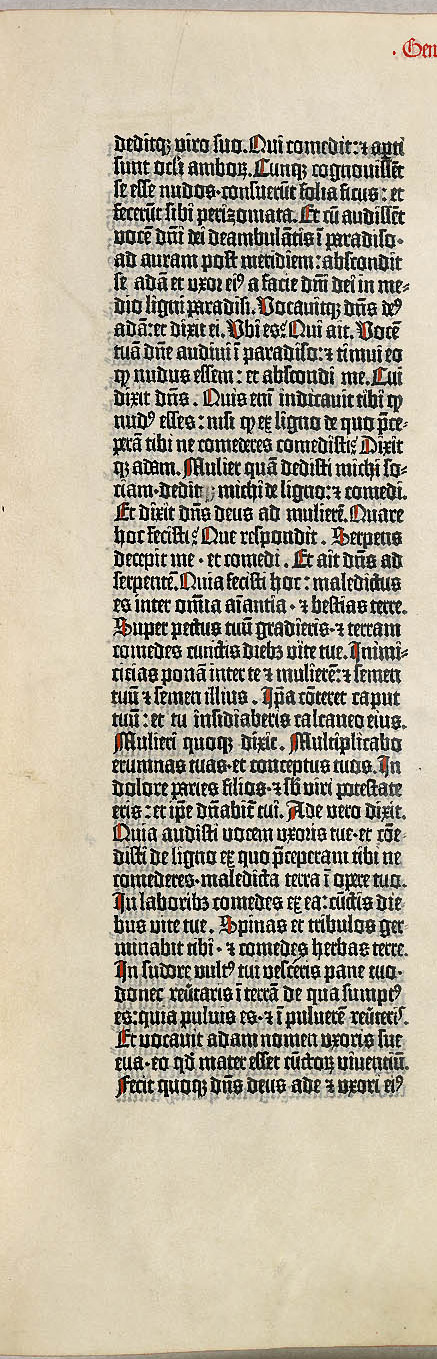 . Gen
deditqꝫ viro suo. Qui comedit: ⁊ apti
sunt oclī amboꝝ. Cunqꝫ cognouissēt
se esse nudos· consuerūt folia ficus: et
fecerūt sibi perizomata. Et cū audissēt
vocē dn̄i dei deambulātis ī paradiso·
ad auram post meridiem: abscondit
se adā et uxor eiꝰ a facie dn̄i dei in me⸗
dio ligni paradisi. Vocauitqꝫ dn̄s deꝰ
adā: et dixit ei. Vbi es? Qui ait. Vocē
tuā dn̄e audiui ī paradiso: ⁊ timui eo
qꝙ nudus essem: et abscondi me. Cui
dixit dn̄s. Quis enī indicauit tibi qꝙ
nudꝰ esses: nisi qꝙ ex ligno de quo p̄ce⸗
perā tibi ne comederes comedisti? Dixit
qꝫ adam. Mulier quā dedisti michi so⸗
ciam· dedit michi de ligno: ⁊ comedi.
Et dixit dn̄s deus ad mulierē. Quare
hoc fecisti? Que respondit. Serpens
decepit me · et comedi. Et ait dn̄s ad
serpentē. Quia fecisti hoc: maledictus
es inter om̄ia aīantia · ⁊ bestias terre.
Super pectus tuū gradieris· ⁊ terram
comedes cunctis diebꝫ vite tue. Inimi⸗
cicias ponā inter te ⁊ mulierē: ⁊ semen
tuū ⁊ semen illius. Ip̄a cōteret caput
tuū: et tu insidiaberis calcaneo eius.
Mulieri quoqꝫ dixit. Multiplicabo
erumnas tuas· et conceptus tuos. In
dolore paries filios· ⁊ sb̄ viri potestate
eris: et ip̄e dn̄abit̄ tui. Ade vero dixit.
Quia audisti uocem uxoris tue· et cōe⸗
disti de ligno ex quo p̄ceperam tibi ne
comederes· maledicta terra ī opere tuo.
In laboribꝫ comedes ex ea: cūctis die⸗
bus vite tue. Spinas et tribulos ger⸗
minabit tibi · ⁊ comedes herbas terre.
In sudore vultꝰ tui vesceris pane tuo·
donec reūtaris ī terrā de qua sumptꝰ
es: quia puluis es· ⁊ ī puluerē reūteris.
Et uocauit adam nomen uxoris sue
eua· eo qđ mater esset cūctoꝝ viuentiū.
Fecit quoqꝫ dn̄s deus ade ⁊ uxori eiꝰ